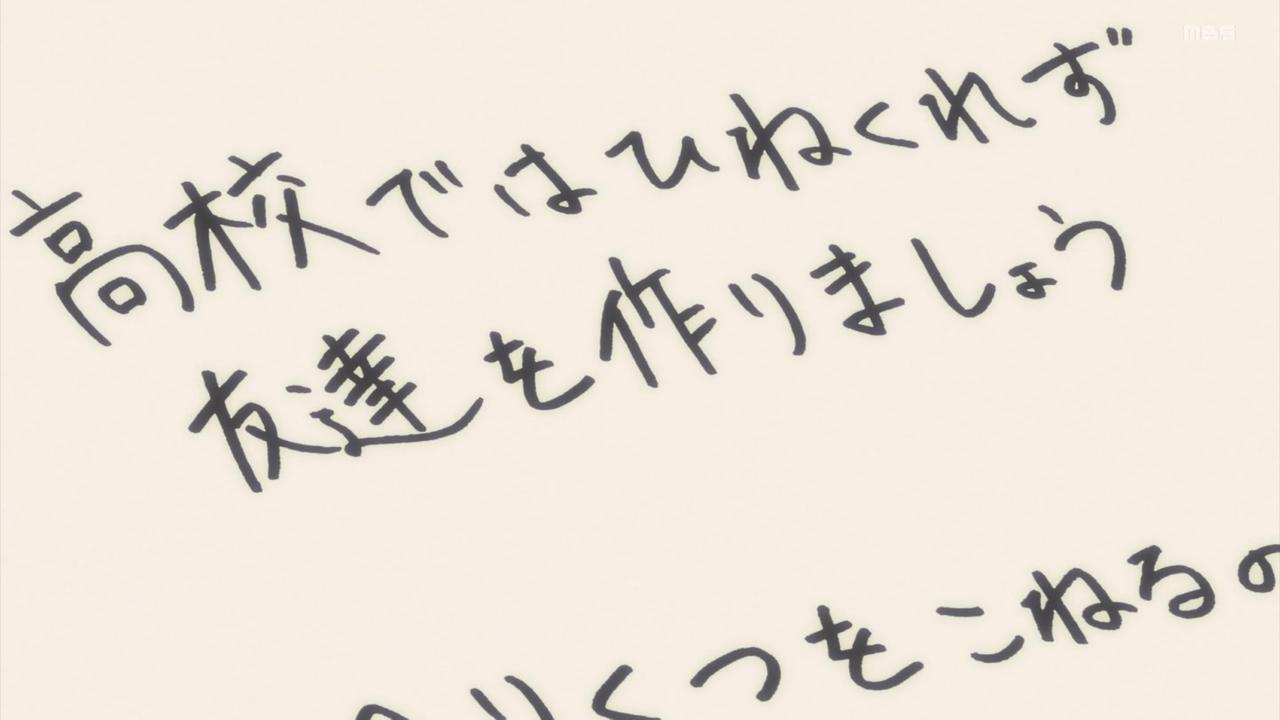 mbs
高校ではひねくれず
友達を作りましょう
りくつをこねるの